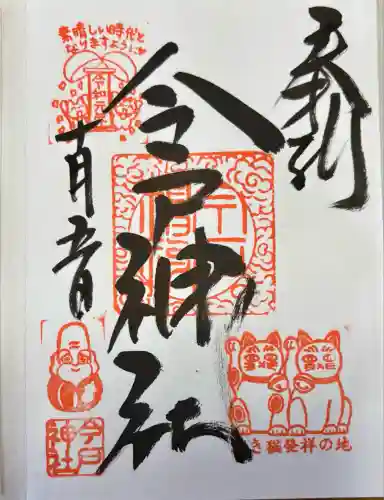 奉拝
素晴しい時代と
なりますように
令和元
今戸神社
十一月五日
き猫発祥の地
今戸
神社